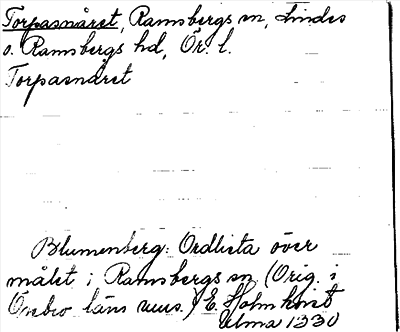 Torpasnåret, Ramsbergs sn, Lindes
o. Ramsbergs hd, Ör. l.
Torpasnåret
Blumenberg: Ordlista över
målet i Ramsbergs sn (Orig. i
Örebro läns mus.) E. Holmkvist
Ulma 1330